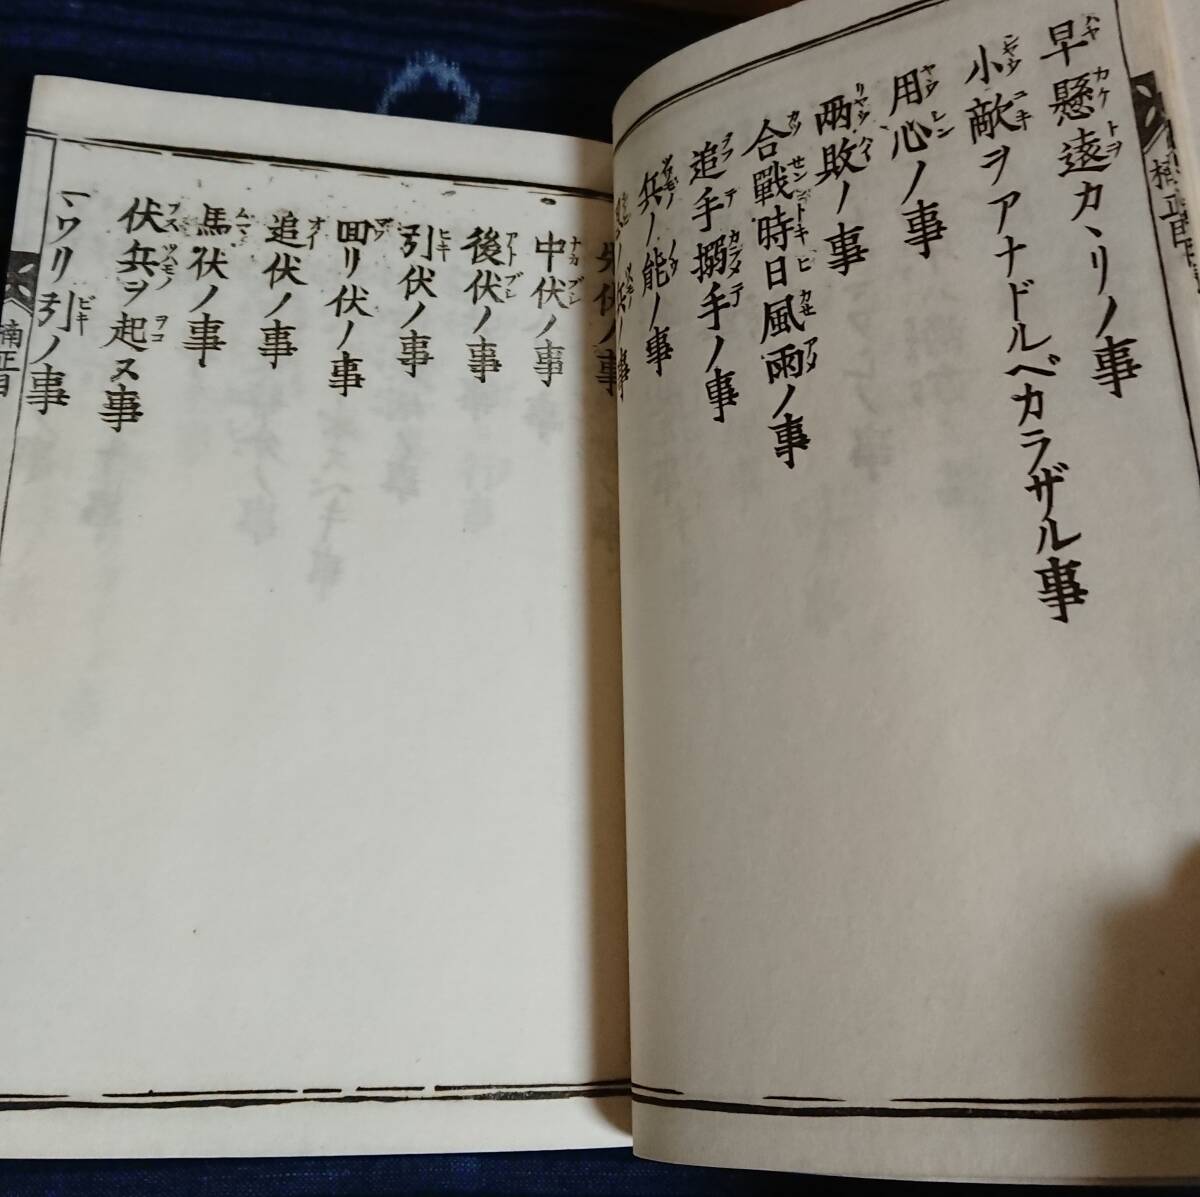 早懸遠カヽリノ事
小敵ヲアナドルベカラザル事
用心ノ事
両敗ノ事
合戰時日風雨ノ事
追手搦手ノ事
兵ノ能ノ事
伏ノ事
中伏ノ事
後伏ノ事
引伏ノ事
回リ伏ノ事
追伏ノ事
馬伏ノ事
伏兵ヲ起ス事
マワリ引ノ事
楠正